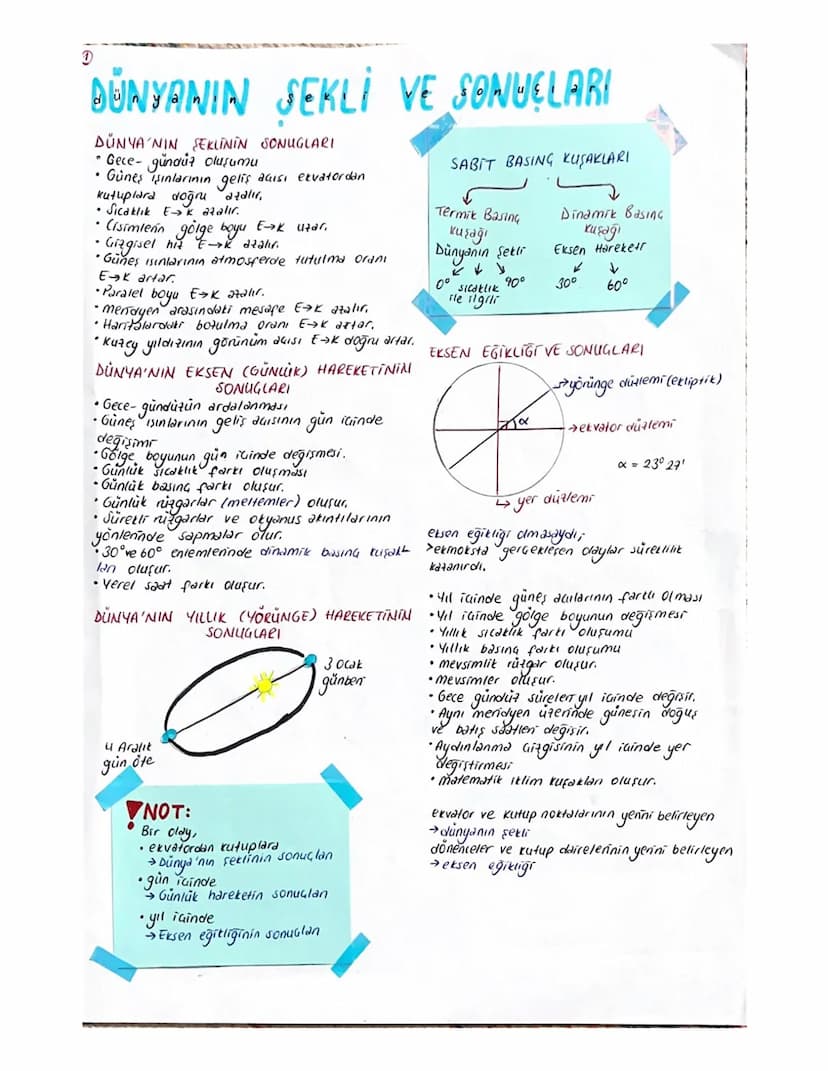 1
DÜNYANIN ŞEKLİ VE SONUÇLARI
dünyanın şekli ve sonuçları
DÜNYA'NIN ŞEKLİNİN SONUÇLARI
• Gece-gündüz oluşumu
• Güneş ışınlarının geliş açısı ekvatordan
kutuplara doğru azalır.
• Sıcaklık E→K azalır.
• Cisimlerin gölge boyu E→K uzar.
• Çizgisel hız E→K azalır.
• Güneş ışınlarının atmosferde tutulma oranı
E→K artar.
• Paralel boyu E→K azalır.
• meridyen arasındaki mesafe E→K azalır.
• Haritalardaki bozulma oranı E→K artar.
• Kuzey yıldızının görünüm açısı E→K doğru artar.
DÜNYA'NIN EKSEN (GÜNLÜK) HAREKETİNİN
SONUÇLARI
• Gece-gündüzün ardalanması
• Güneş ışınlarının geliş açısının gün içinde
değişimi
• Gölge boyunun gün içinde değişmesi.
• Günlük sıcaklık farkı oluşması
• Günlük basınç farkı oluşur.
• Günlük rüzgarlar (meltemler) oluşur.
• Sürekli rüzgarlar ve okyanus akıntılarının
yönlerinde sapmalar olur.
• 30° ve 60° enlemlerinde dinamik basınç kuşak-
ları oluşur.
• Yerel saat farkı oluşur.
DÜNYA'NIN YILLIK (YÖRÜNGE) HAREKETİNİN
SONUÇLARI
3 Ocak
günberi
4 Aralık
gün öte
! NOT:
Bir olay,
• ekvatordan kutuplara
→ Dünya'nın şeklinin sonuçları
• gün içinde
→ Günlük hareketin sonuçları
• yıl içinde
→ Eksen eğikliğinin sonuçları
SABİT BASINÇ KUŞAKLARI
Termik Basınç
Kuşağı
Dünyanın Şekli
0° sıcaklık 90°
ile ilgili
Dinamik Basınç
Kuşağı
Eksen Hareketi
30° 60°
EKSEN EĞİKLİĞİ VE SONUÇLARI
→ yörünge düzlemi (ekliptik)
α
→ ekvator düzlemi
α = 23° 27'
↳ yer düzlemi
eksen eğikliği olmasaydı;
> ekinoksta gerçekleşen olaylar süreklilik
kazanırdı.
• Yıl içinde güneş açılarının farklı olması
• Yıl içinde gölge boyunun değişmesi
• Yıllık sıcaklık farkı oluşumu
• Yıllık basınç farkı oluşumu
• mevsimlik rüzgar oluşur.
• mevsimler oluşur.
• Gece gündüz süreleri yıl içinde değişir.
• Aynı meridyen üzerinde güneşin doğuş
ve batış saatleri değişir.
• Aydınlanma çizgisinin yıl içinde yer
değiştirmesi
• matematik iklim kuşakları oluşur.
ekvator ve kutup noktalarının yerini belirleyen
→ dünyanın şekli
dönenceler ve kutup dairelerinin yerini belirleyen
→ eksen eğikliği